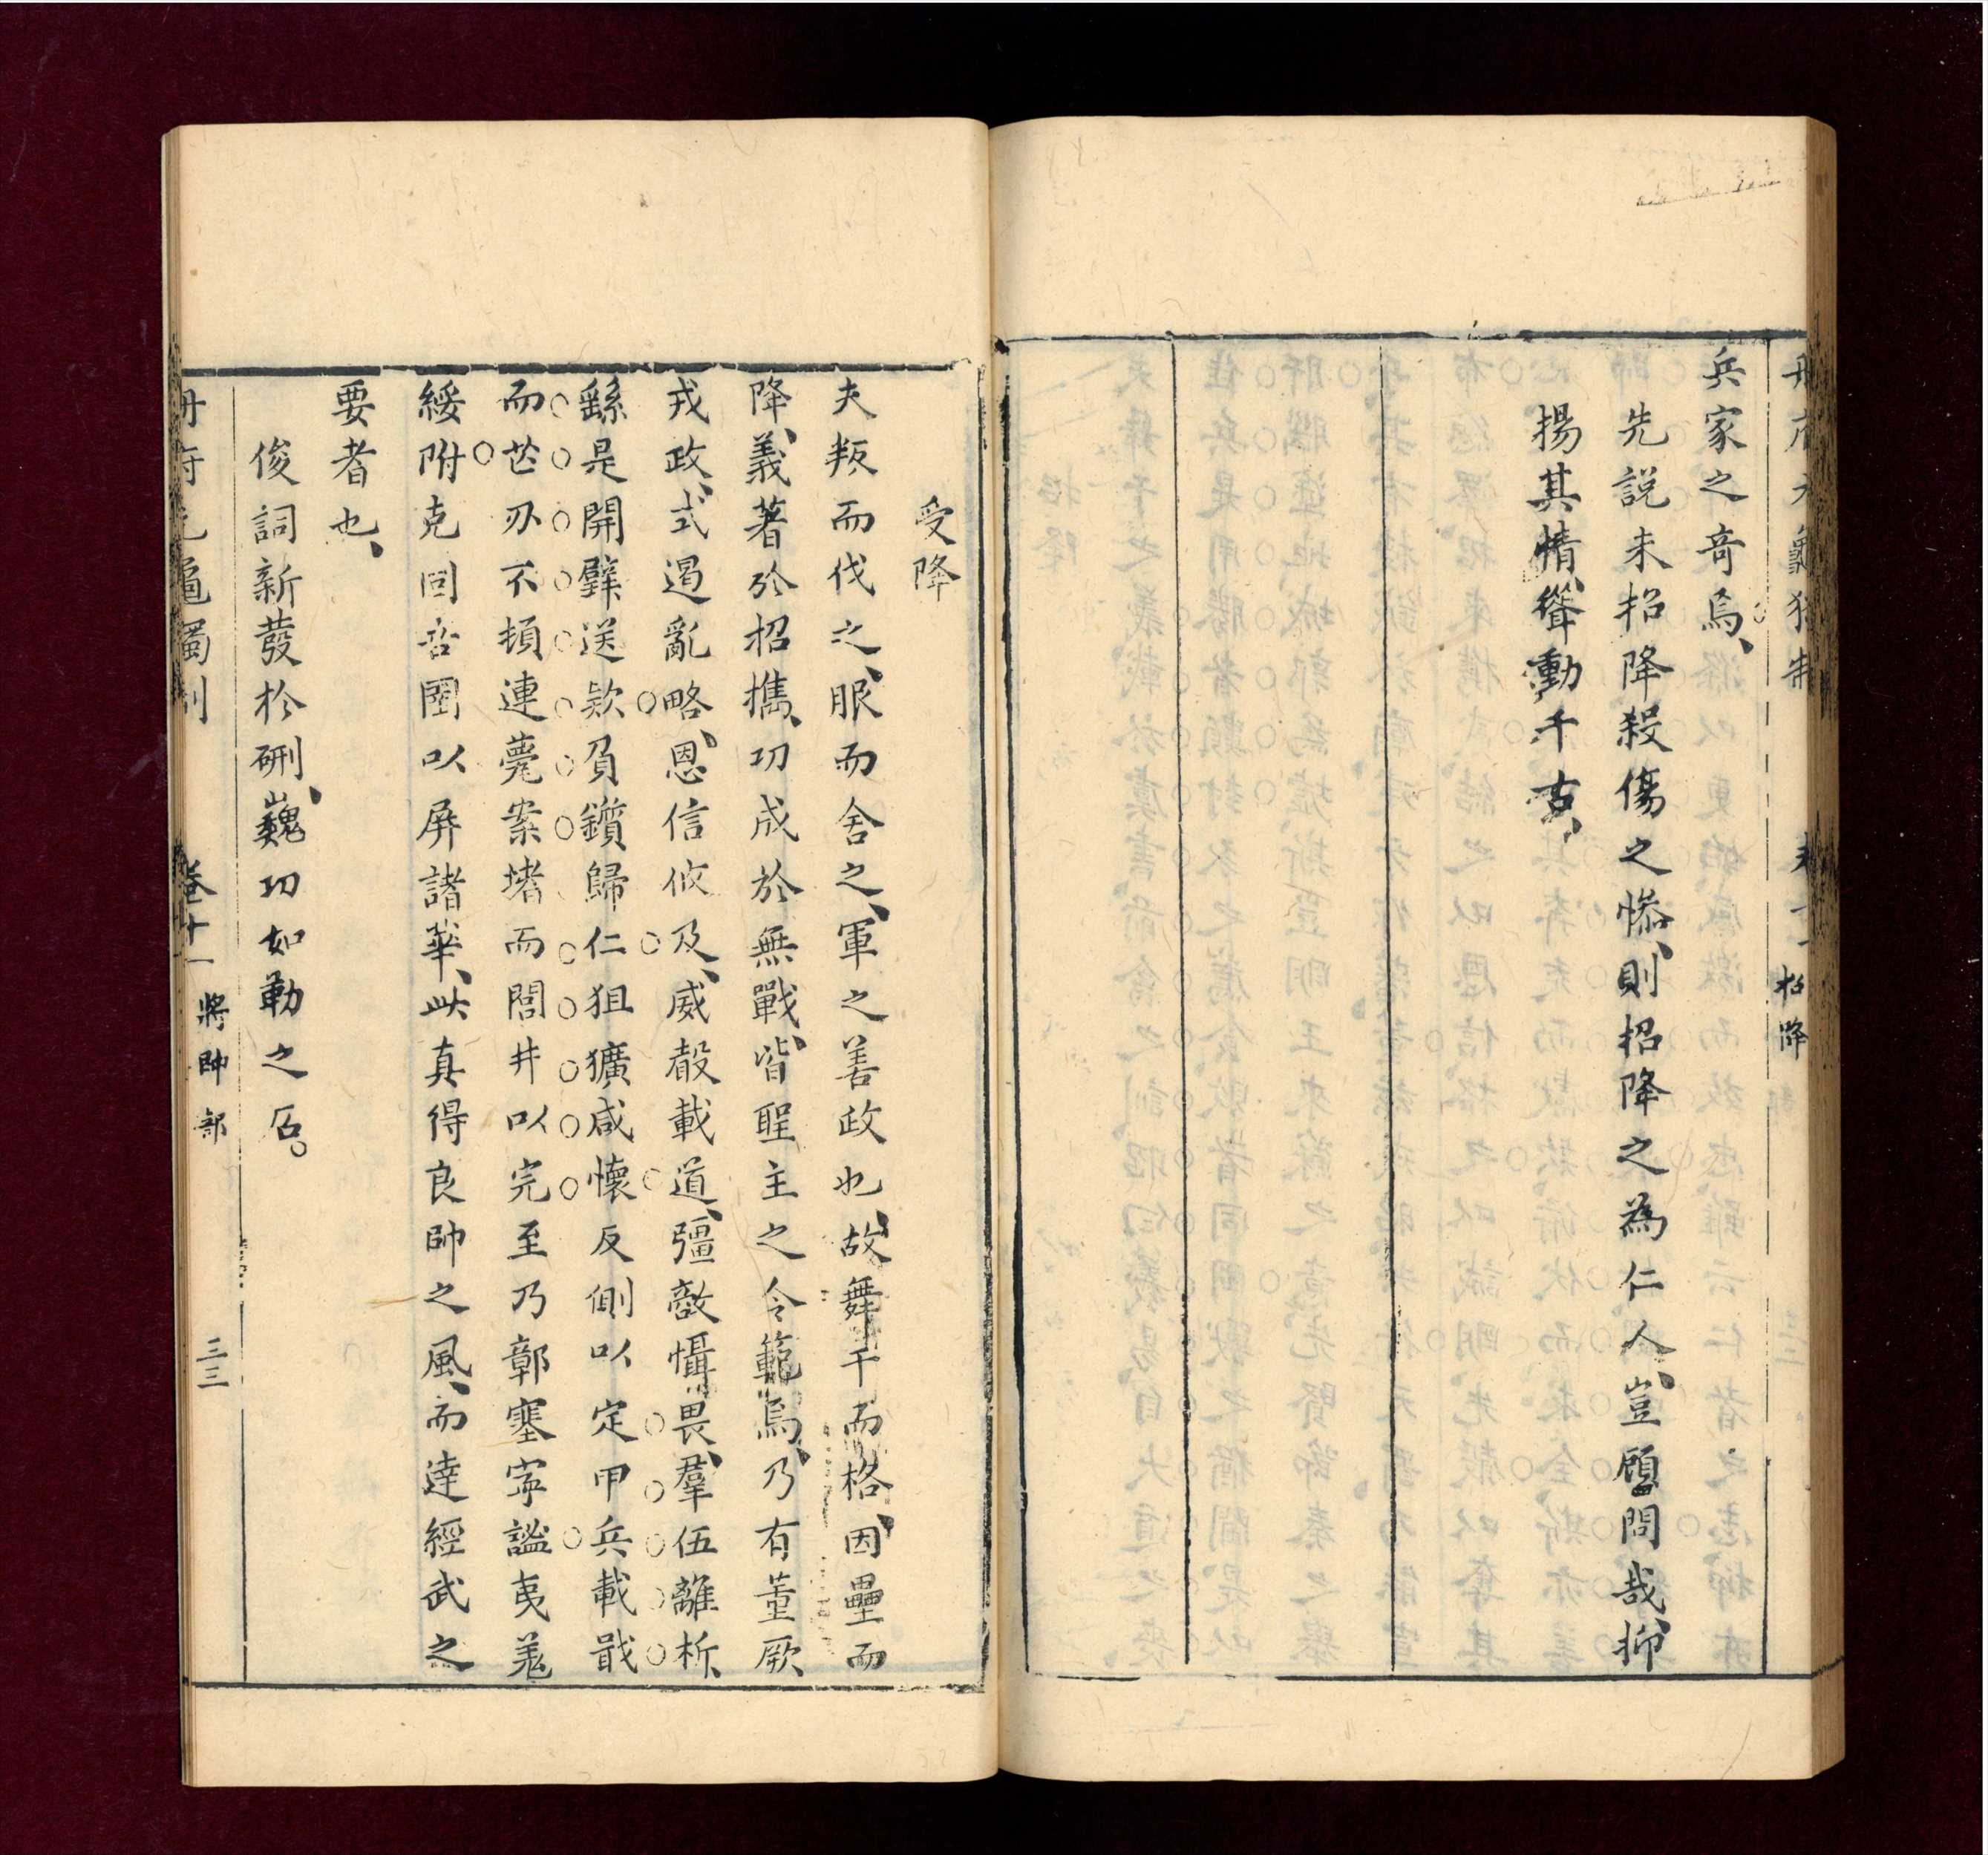 兵家之竒焉、
先説未招降殺傷之慘、則招降之為仁人、豈顧問哉、抑
揚其情、聳動千古、
招降
受降
夫叛而伐之、服而舍之、軍之善政也、故舞干而格、因壘而
降、義著於招攜、功成於無戰、皆聖主之令範焉、乃有董厥
戎政、式遏亂略、恩信攸及、威聲載道、彊敵懾畏、羣伍離析、
繇是開壁送欵負鑕歸仁狙獷咸懷反側以定甲兵載戢
而芒刃不頓連甍案堵而閭井以完至乃鄣塞寜謐夷羌
綏附克固吾圉以屏諸華、此真得良帥之風、而達經武之
要者也、
俊詞新發於硎、巍功如勒之石。
卷十一 將帥部 三三